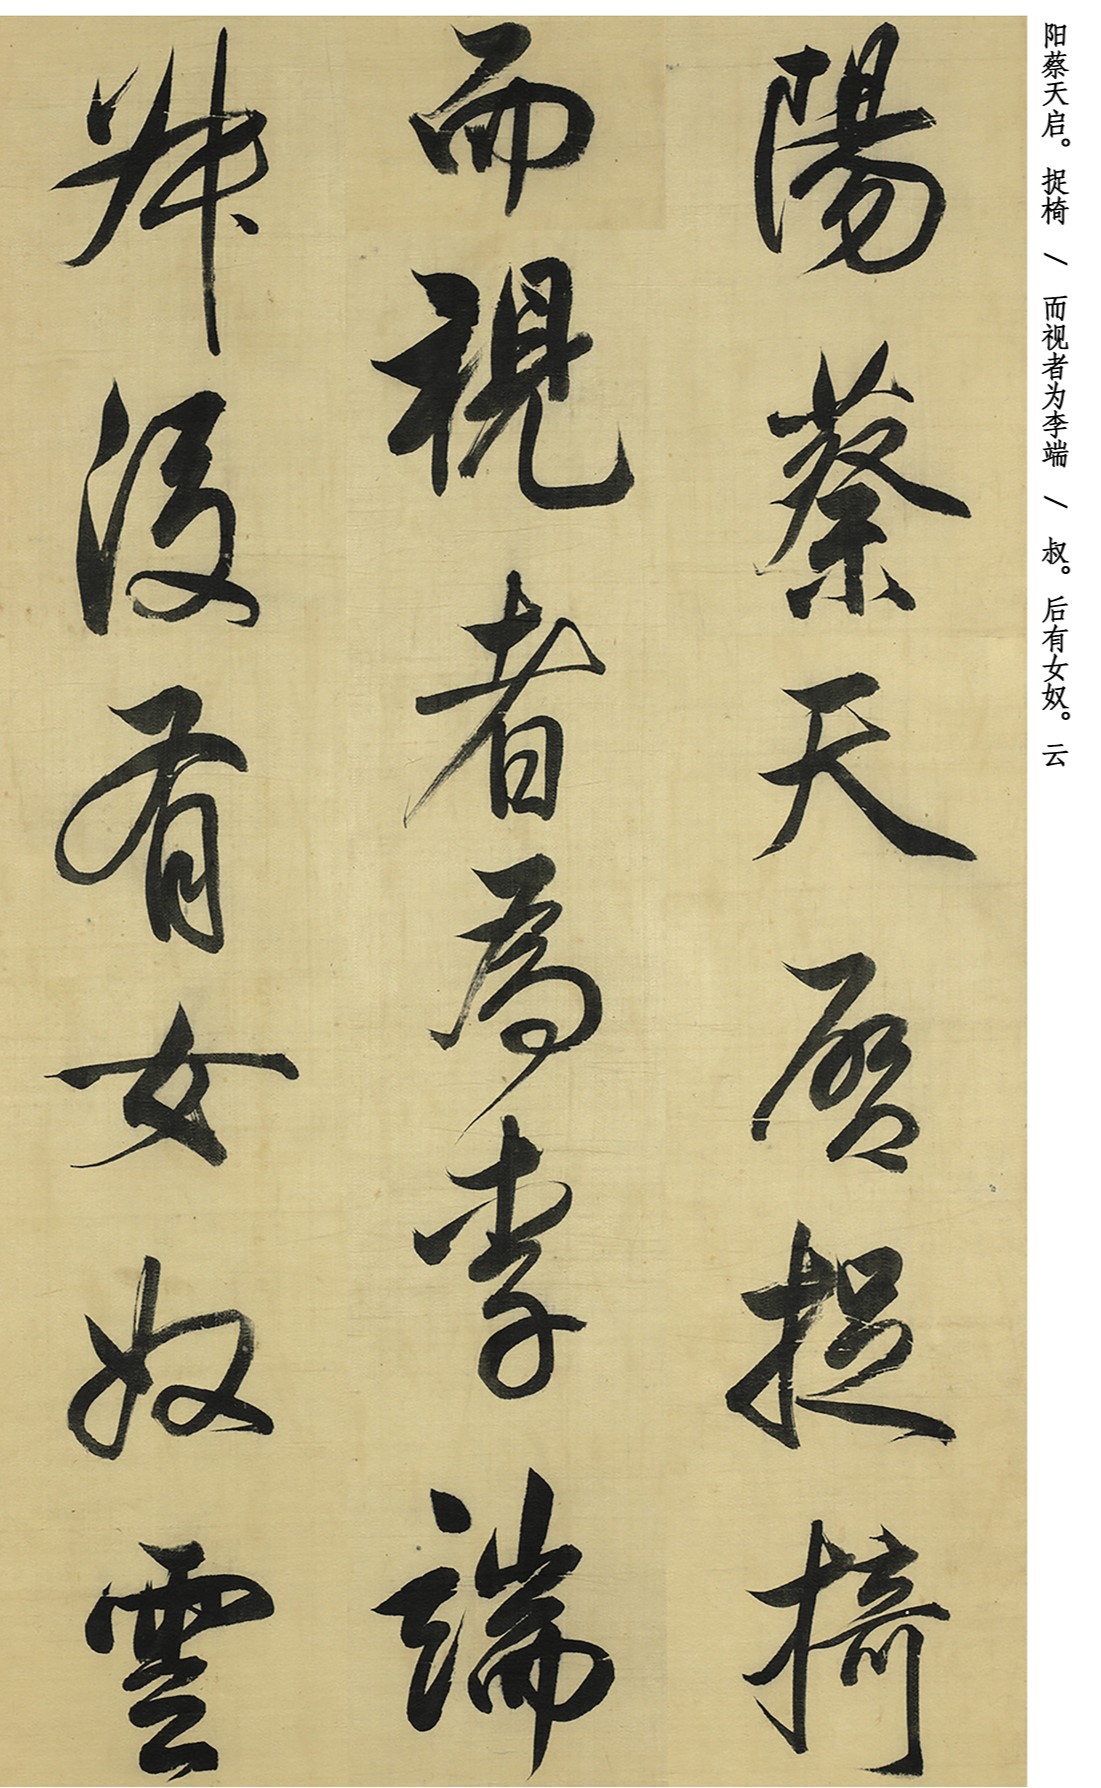 陽蔡天啓捉掎
而視者為李端
叔後有女奴雲
阳蔡天启。捉椅 / 而视者为李端 / 叔。后有女奴。云